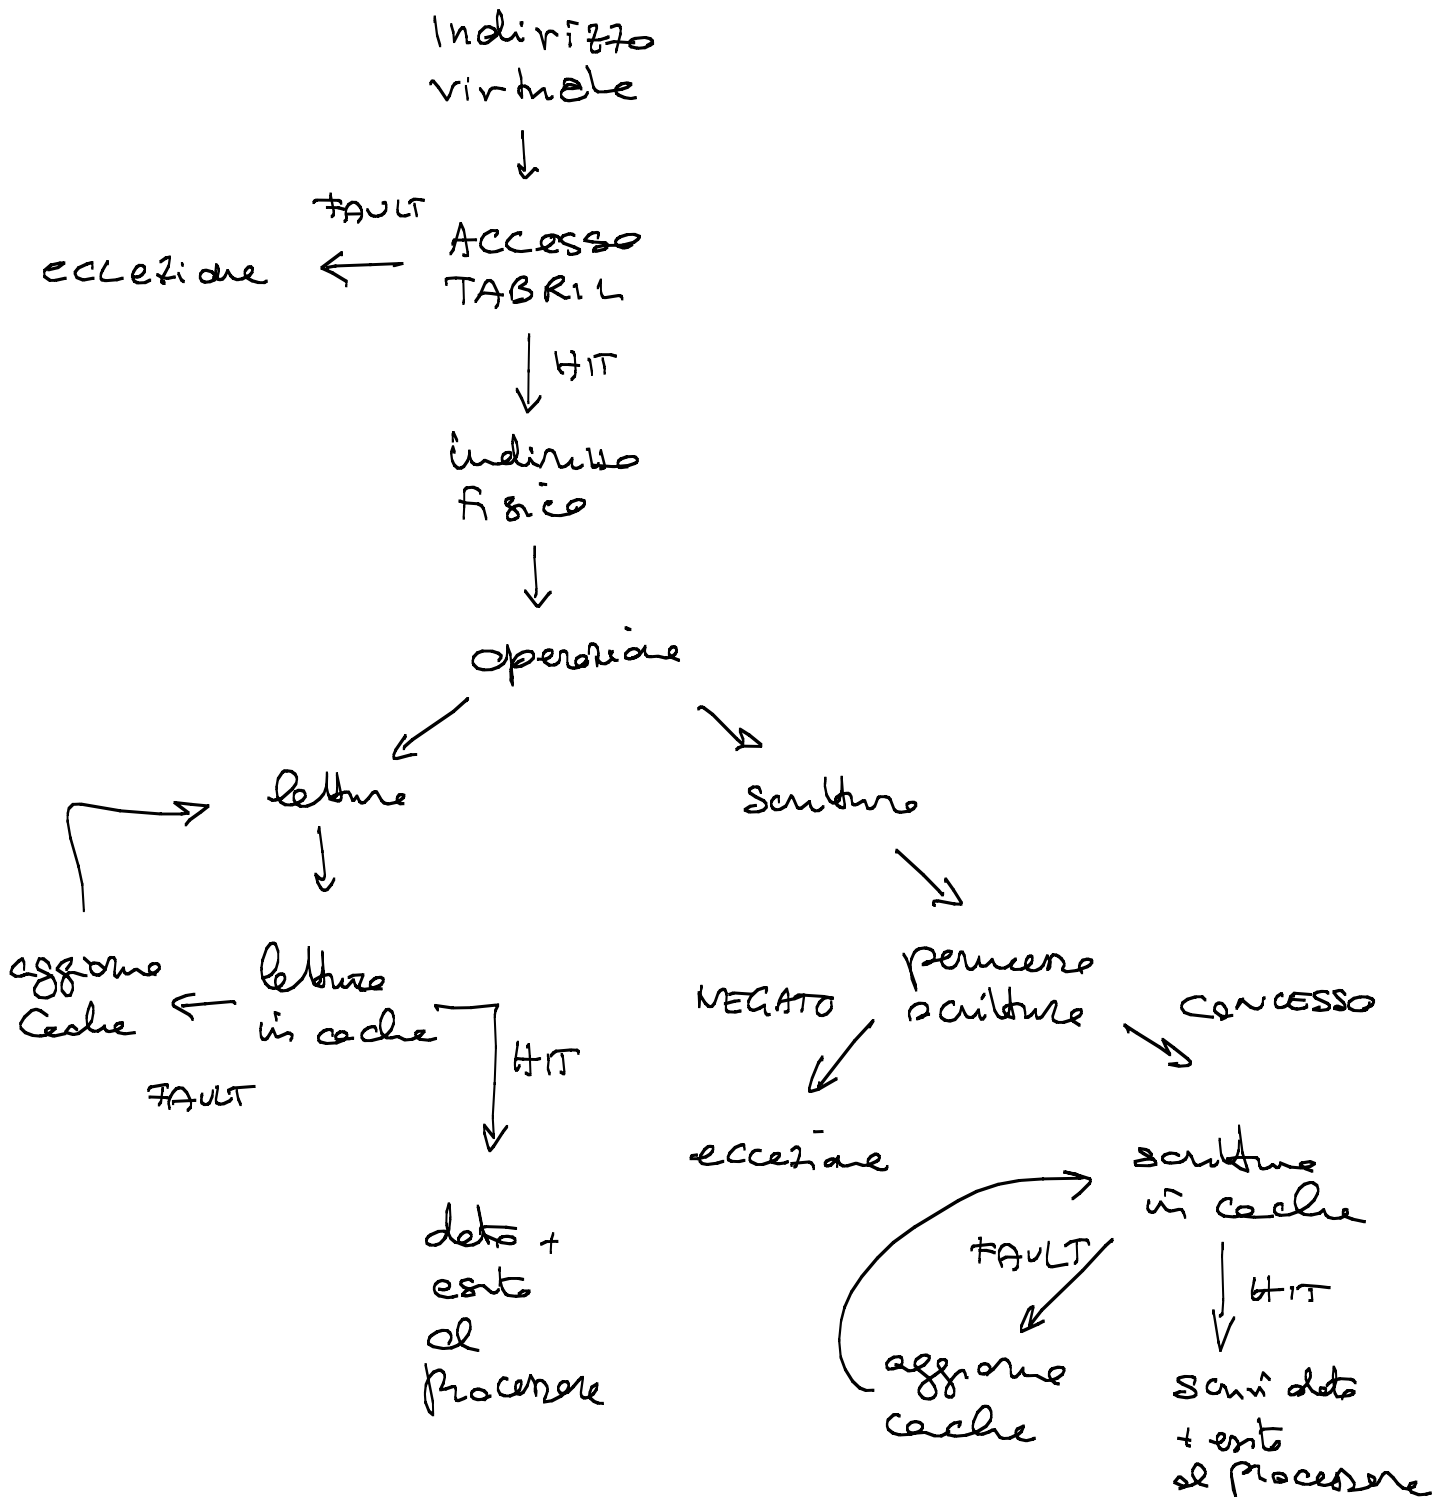 Indirizzo
virtuale
FAULT
ACCESSO
TABRIL
eccezione
HIT
indirizzo
fisico
operazione
lettura
scrittura
aggiorna
cache
lettura
in cache
FAULT
HIT
dato +
esito
al
processore
permesso
scrittura
NEGATO
CONCESSO
eccezione
scrittura
in cache
FAULT
HIT
aggiorna
cache
scrivi dato
+ esito
al processore